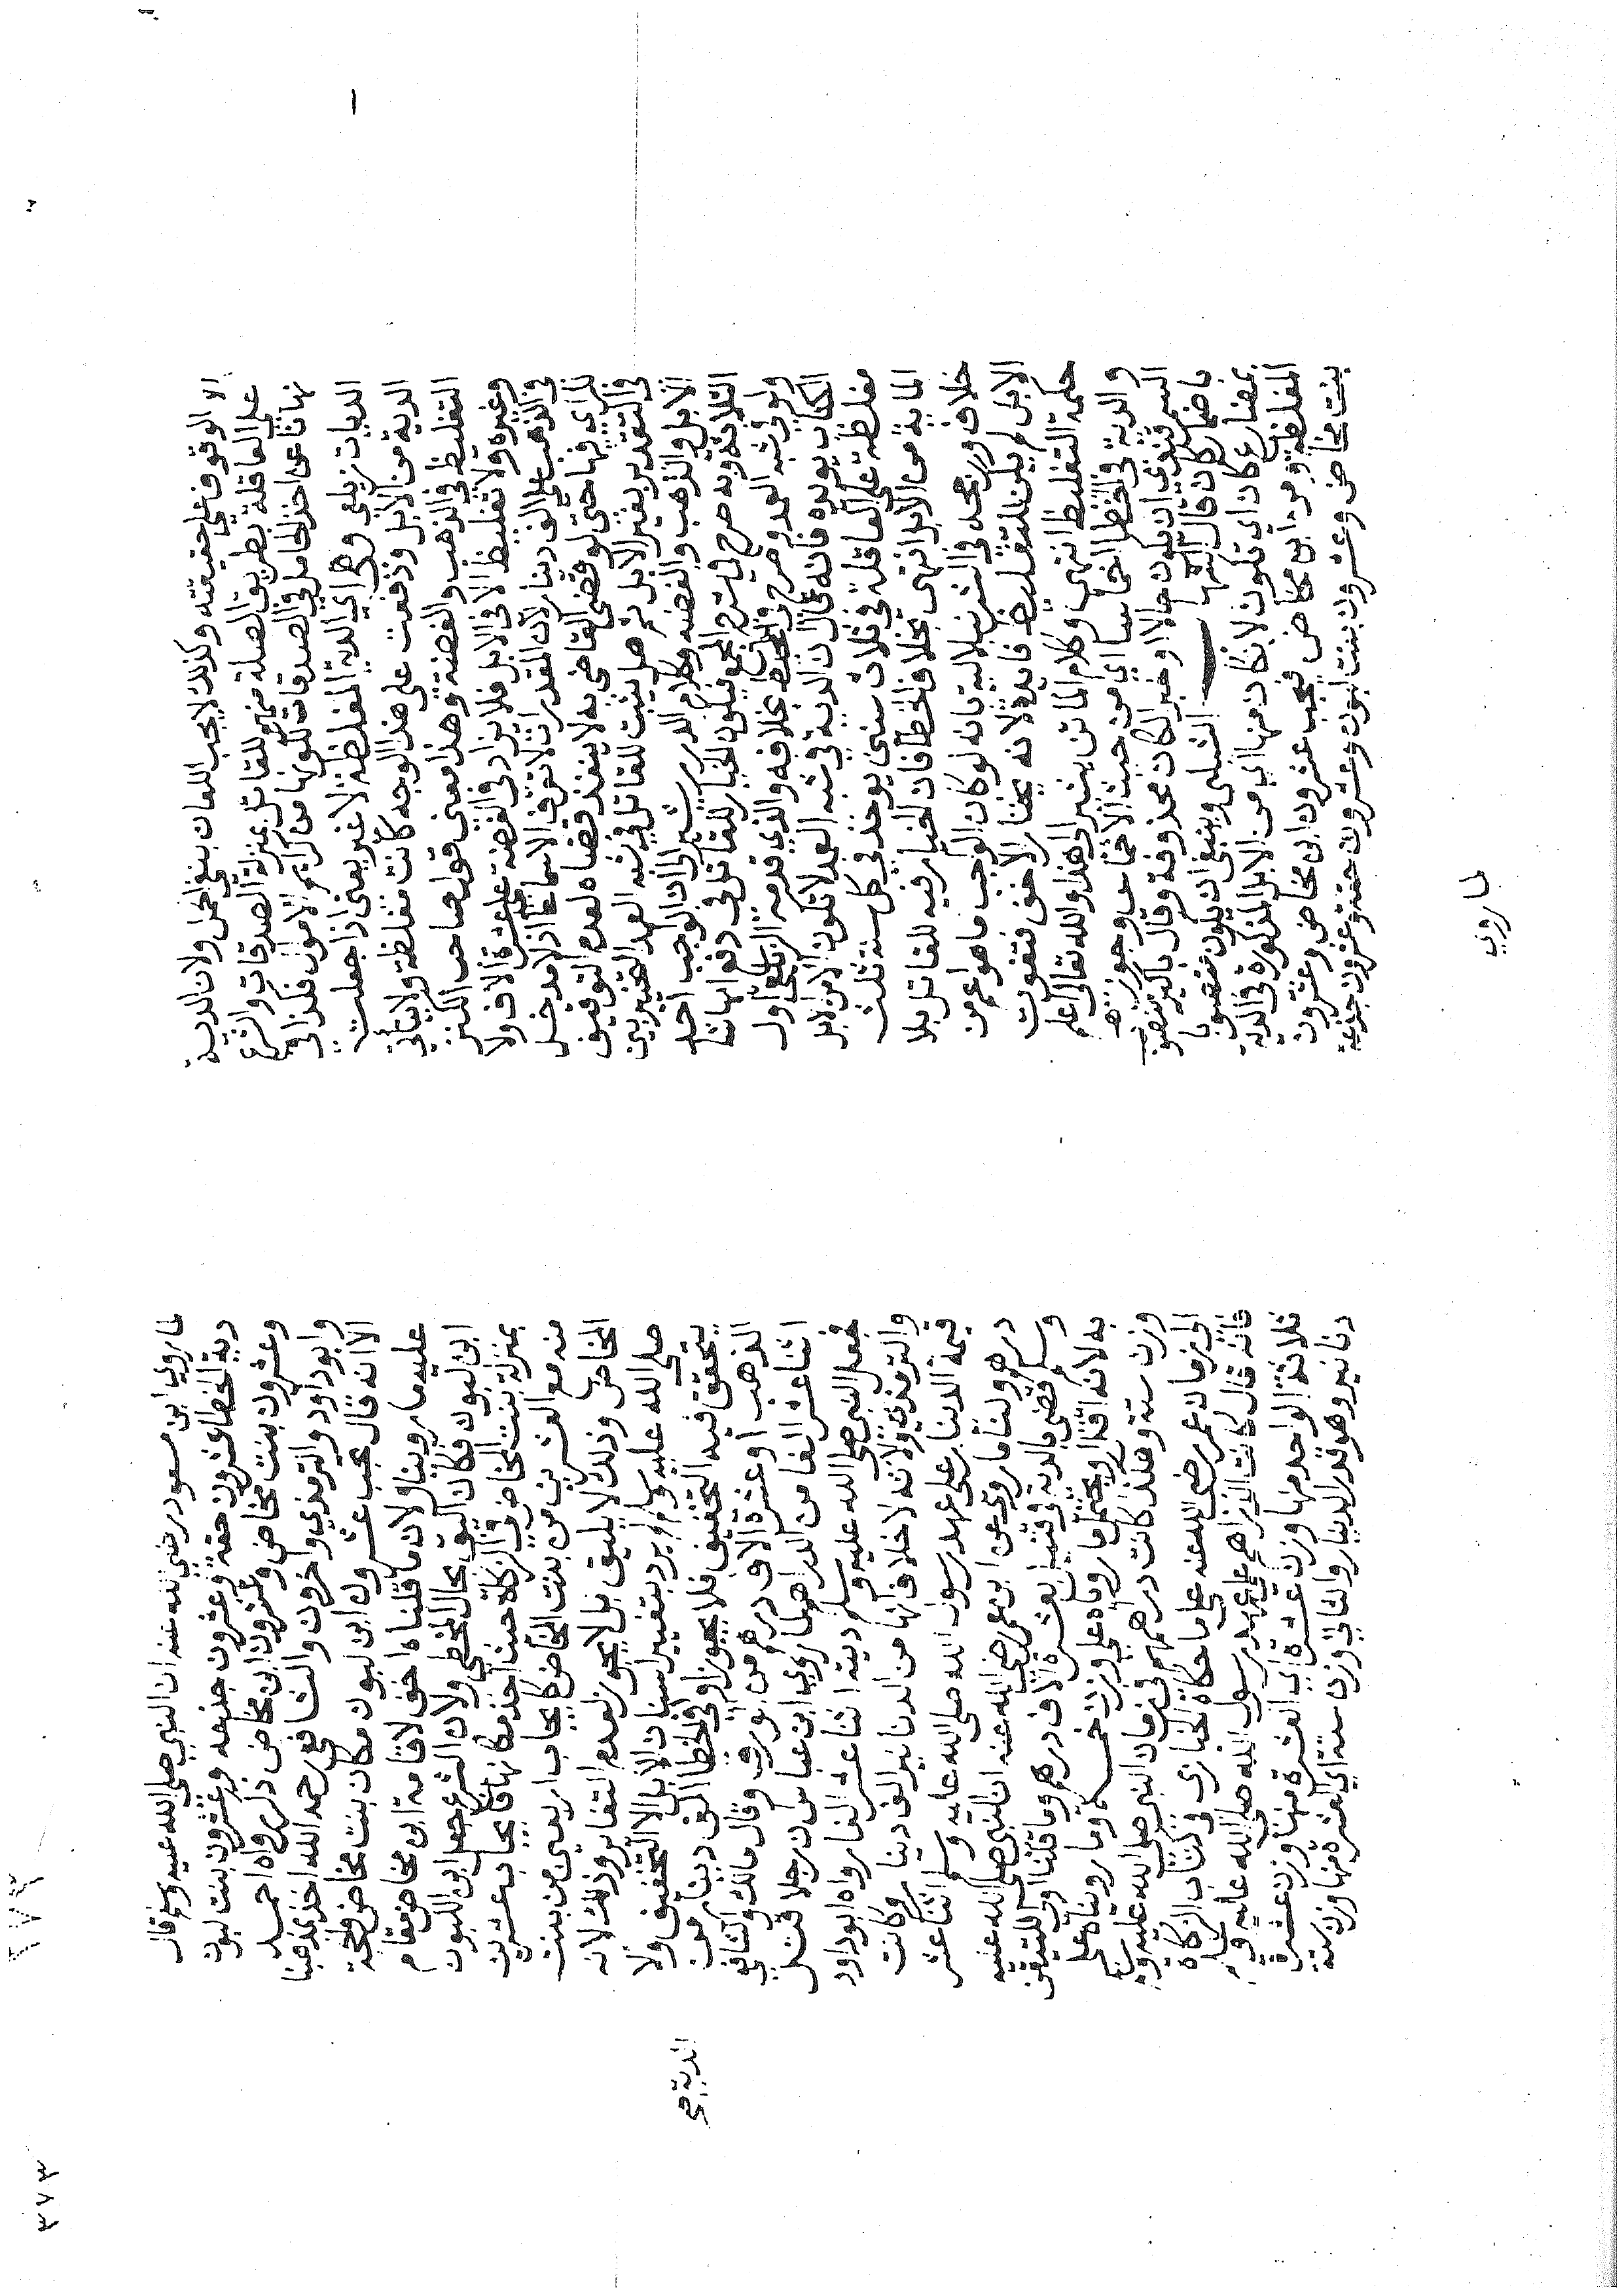 الا لوقوف على حقيقته وكذلك لا يجب اللعان بنفي الحمل ولان الدية
على العاقلة بطريق الصلة منهم للقاتل بمنزلة الصدقات والشرع
نهانا عن اخذ الحامل في الصدقات لكونها من كرايم الاموال فكذا في
الديات زيلعي وهي اي الدية المغلظة لا غير يعني اذا جعلت
الدية من الابل ودفعت على هذا الوجه كانت مغلظة ولا يتأتي
التغليظ في الذهب والفضة وهذا معني قول صاحب الكنز
وغيره ولا تغليظ الا في الابل فلا يزاد في الفضة على عشرة الاف ولا
في الذهب على الف دينار لان المقدرات لا تعرف الا سماعا اذ لا مدخل
للرأي فيها حتى لو قضى القاضي به لا ينفذ قضاه لعدم التوقيف
في التقدير بغير الابل ثم هل يثبت للقاتل في شبه العمد التخيير بين
الابل والذهب والفضة وكلام الدرر يشير الى ان الواجب احد
الثلاثة وبه صرح في شرح المجمع فيكون الخيار للقاتل في دفع ايها شا
ولو في شبه العمد وصرح في المحيط بخلافه والذي قدمه الزيلعي اول
الكتاب يويده فانه قال ان الدية في شبه العمد لا تكون الا من الابل
مغلظة على العاقلة في ثلاث سنين يوخذ في كل سنة ثلث
الماية من الابل انتهى بخلاف الخطأ فان الخيار فيه للقاتل بلا
خلاف ورجحه في الشرنبلالية بانه لو كان الواجب ما هو اعم من
الابل لم يكن للتغليظ فايدة لانه يختار الاخف فتفوت
حكمة التغليظ انتهى وكلام الماتن يشير الى هذا والله تعالى اعلم
والدية في الخطأ اخماسا اي من حيث الاخماس وجوز نصبه
الشمني على ان يكون حالا او خبر الكان محذوفة وقال باكير نصبه
باضمار كان قال الشلبي وينبغي ان يكون منصوبا
بمضارع كان اي تكون لا بكاد منها اي من الابل المذكورة في الدية
المغلظة ومن ابن مخاض فيجب عشرون ابن مخاض وعشرون
بنت مخاض وعشرون بنت لبون وعشرون حقة وعشرون جذعة
لما روي
لما روي ابن مسعود رضي الله عنه ان النبي صلى الله عليه وسلم قال
دية الخطا عشرون حقة وعشرون جذعة وعشرون بنت لبون
وعشرون بنت مخاض وعشرون ابن مخاض ذكر رواه احمد
وابو داود والترمذي واخرون والشافعي رحمه الله اخذ بمذهبنا
الا انه قال يجب عشرون ابن لبون مكان بنت مخاض والحجة
عليه ما روينا ولان ما قلناه اخف لاقامة ابن مخاض مقام
ابن لبون فكان اليق بحال المخطي ولان الشرع جعل ابن اللبون
بمنزلة بنت المخاض في الزكاة حيث اخذ مكانها فايجاب عشرين
منه مع العشرين من بنت المخاض كايجاب اربعين من بنت
المخاض وذلك لا يليق بل لا يجوز لعدم التغاير وذلك لانه
صلى الله عليه وسلم لم يرد بتغيير اسنان الابل الا التخفيف ولا
يتحقق فيه التخفيف فلا يجوز او في الخطا الف دينار من
الذهب او عشرة الاف درهم من الورق وقال مالك والشافعي
اثنا عشر الفا من الدراهم لما روي ابن عباس ان رجلا قتل
فجعل النبي صلى الله عليه وسلم ديته اثنا عشر الفا رواه ابو داود
والترمذي ولانه لا خلاف انها من الدنانير الف دينار وكانت
قيمة الدينار على عهد رسول الله صلى الله عليه وسلم اثنا عشر
درهم ولنا ما روي عن ابن عمر رضي الله عنه ان النبي صلى الله عليه
وسلم قضى بالدية في قتيل بعشرة الاف درهم وما قلنا اولى للتيقن
به لانه اقل او يحتمل ما رواه على وزن خمسة وما رويناه على
وزن ستة وهكذا كانت دراهمهم في زمان النبي صلى الله عليه وسلم
الى زمان عمر رضي الله عنه على ما حكاه الخبازي في كتاب الزكاة
فانه قال كانت الدراهم على عهد رسول الله صلى الله عليه وسلم
ثلاثة الواحد منها وزن عشرة اي العشرة منها وزن عشرة
دنانير وهو قدر الدينار والثاني وزن ستة اي العشرة منها وزن ستة
الدية صح
٣٧٣